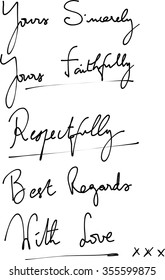 Yours Sincerely
Yours Faithfully
Respectfully
Best Regards
With Love
xxx
shutterstock.com · 355599875